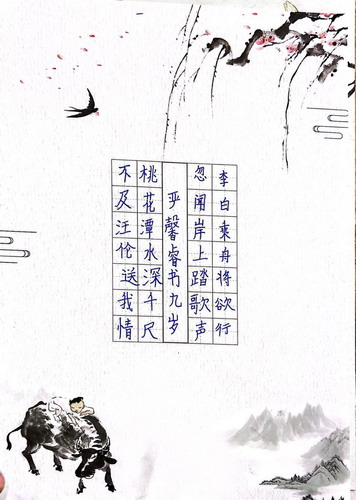 李白乘舟将欲行
忽闻岸上踏歌声
乎馨睿书九岁
桃花潭水深千尺
不及汪伦送我情